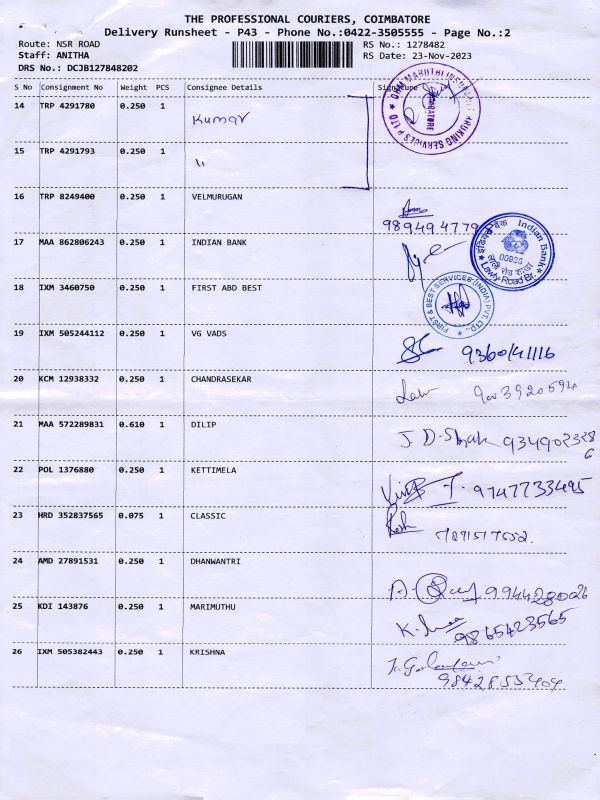 THE PROFESSIONAL COURIERS, COIMBATORE
Delivery Runsheet - P43 - Phone No.:0422-3505555 - Page No.:2
Route: NSR ROAD RS No.: 1278482
Staff: ANITHA RS Date: 23-Nov-2023
DRS No.: DCJB127848202
S No Consignment No Weight PCS Consignee Details Signature
14 TRP 4291780 0.250 1 Kumar
15 TRP 4291793 0.250 1 "
16 TRP 8249400 0.250 1 VELMURUGAN
9894944779
17 MAA 862806243 0.250 1 INDIAN BANK
Indian Bank
00935
Lawly Road Br.
18 IXM 3460750 0.250 1 FIRST ABD BEST
FIRST & BEST SERVICES (INDIA) PVT. LTD.
19 IXM 505244112 0.250 1 VG VADS
9360141116
20 KCM 12938332 0.250 1 CHANDRASEKAR
9003920594
21 MAA 572289831 0.610 1 DILIP
22 POL 1376880 0.250 1 KETTIMELA
9747733495
23 HRD 352837565 0.075 1 CLASSIC
24 AMD 27891531 0.250 1 DHANWANTRI
9944280026
25 KDI 143876 0.250 1 MARIMUTHU
9865423565
26 IXM 505382443 0.250 1 KRISHNA